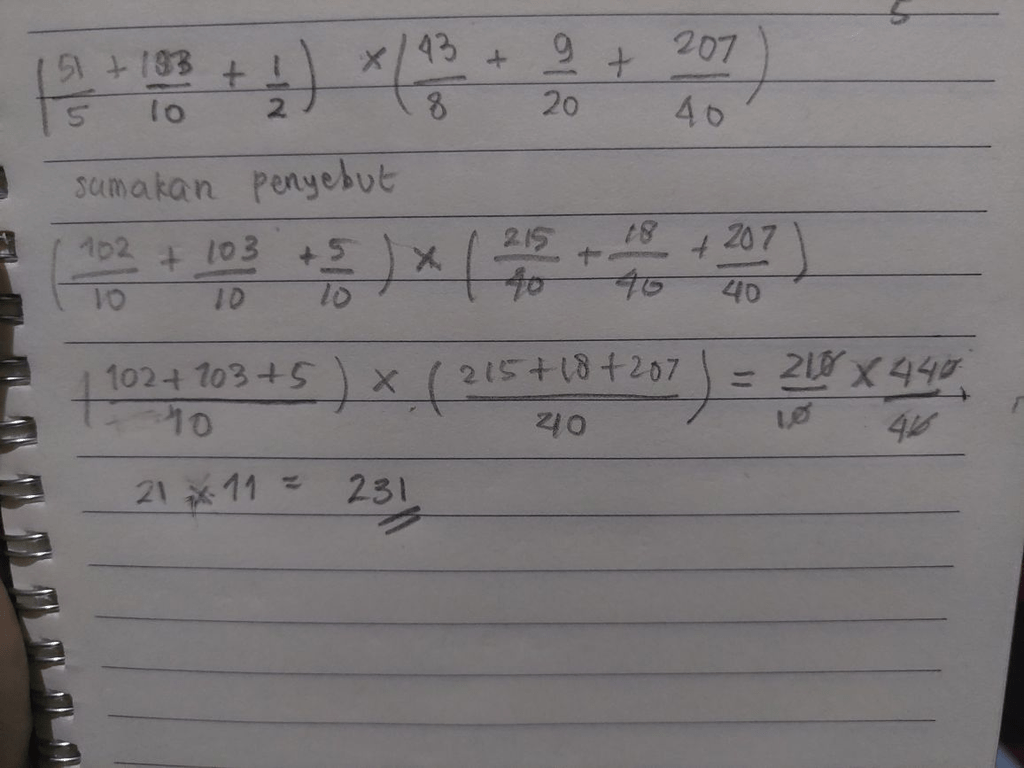 5
(51/5 + 103/10 + 1/2) × (43/8 + 9/20 + 207/40)
samakan penyebut
(102/10 + 103/10 + 5/10) × (215/40 + 18/40 + 207/40)
(102+103+5/10) × (215+18+207/40) = 210/10 × 440/40
21 × 11 = 231